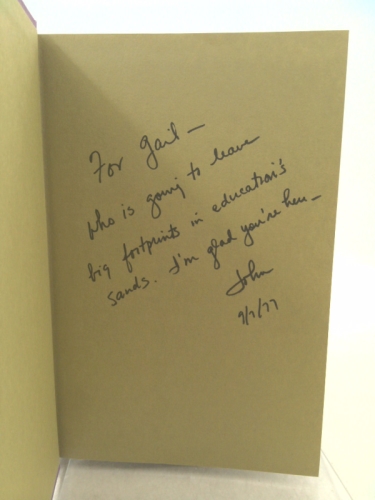 For Gail —
who is going to leave
big footprints in education's
sands. I'm glad you're here —
John
9/7/77